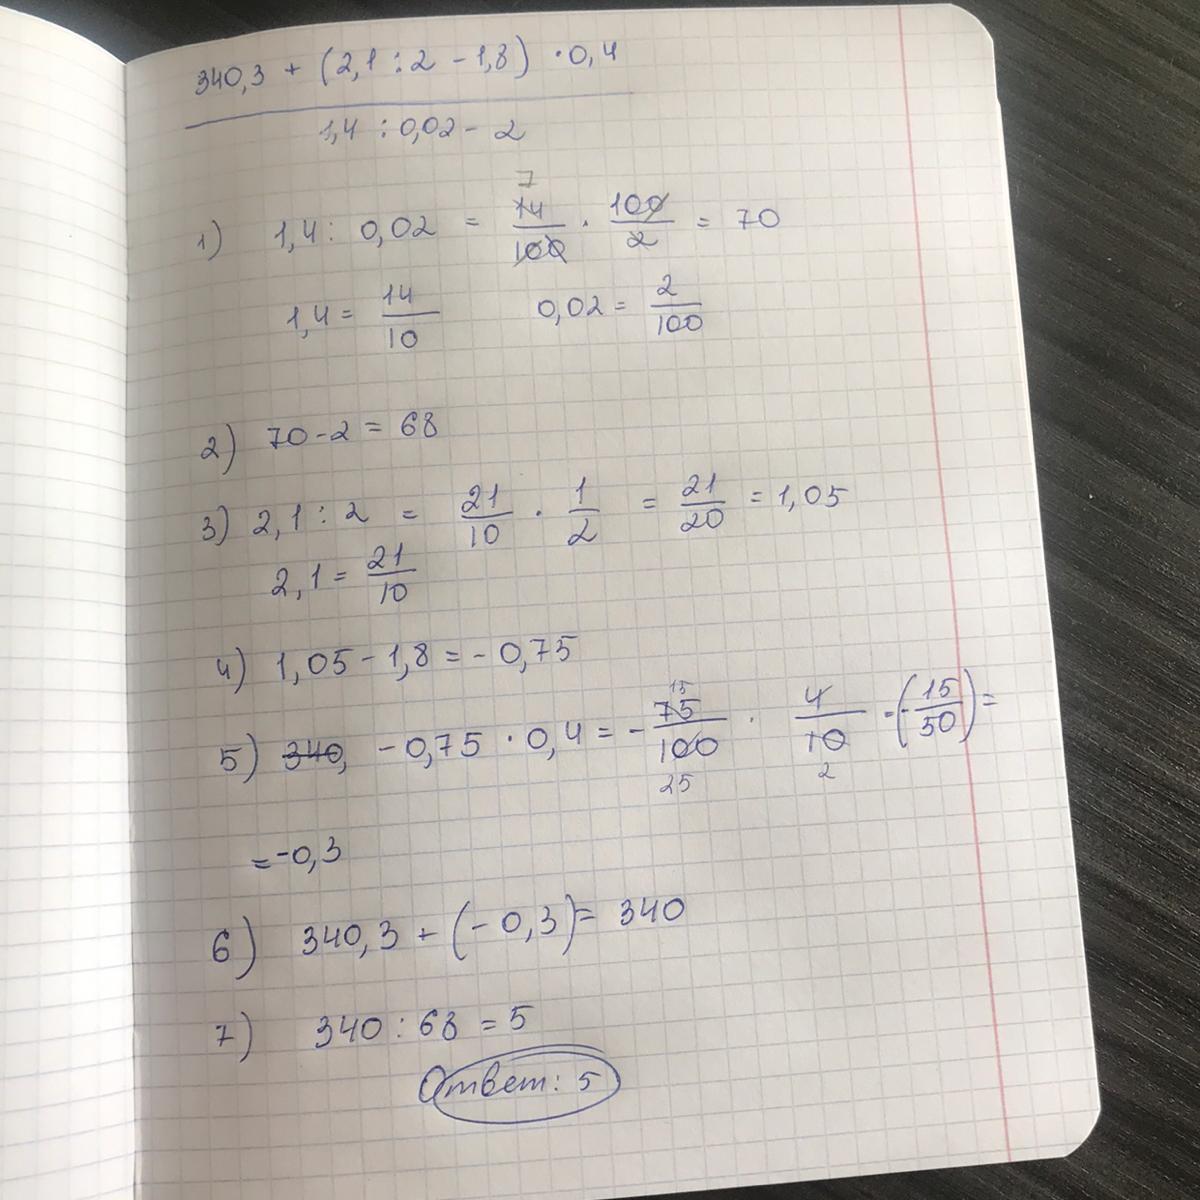 340,3 + (2,1 : 2 - 1,8) · 0,4
1,4 : 0,02 - 2
1) 1,4 : 0,02 = 14/100 · 100/2 = 70
7
1,4 = 14/10 0,02 = 2/100
2) 70 - 2 = 68
3) 2,1 : 2 = 21/10 · 1/2 = 21/20 = 1,05
2,1 = 21/10
4) 1,05 - 1,8 = - 0,75
15
5) 340, - 0,75 · 0,4 = - 75/100 · 4/10 = (- 15/50) =
25 2
= -0,3
6) 340,3 + (- 0,3) = 340
7) 340 : 68 = 5
Ответ: 5